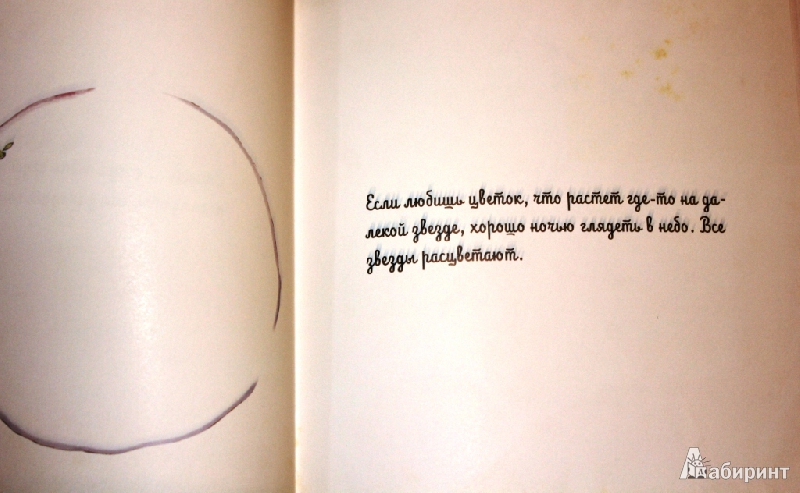 Если любишь цветок, что растет где-то на да-
лекой звезде, хорошо ночью глядеть в небо. Все
звезды расцветают.
Лабиринт